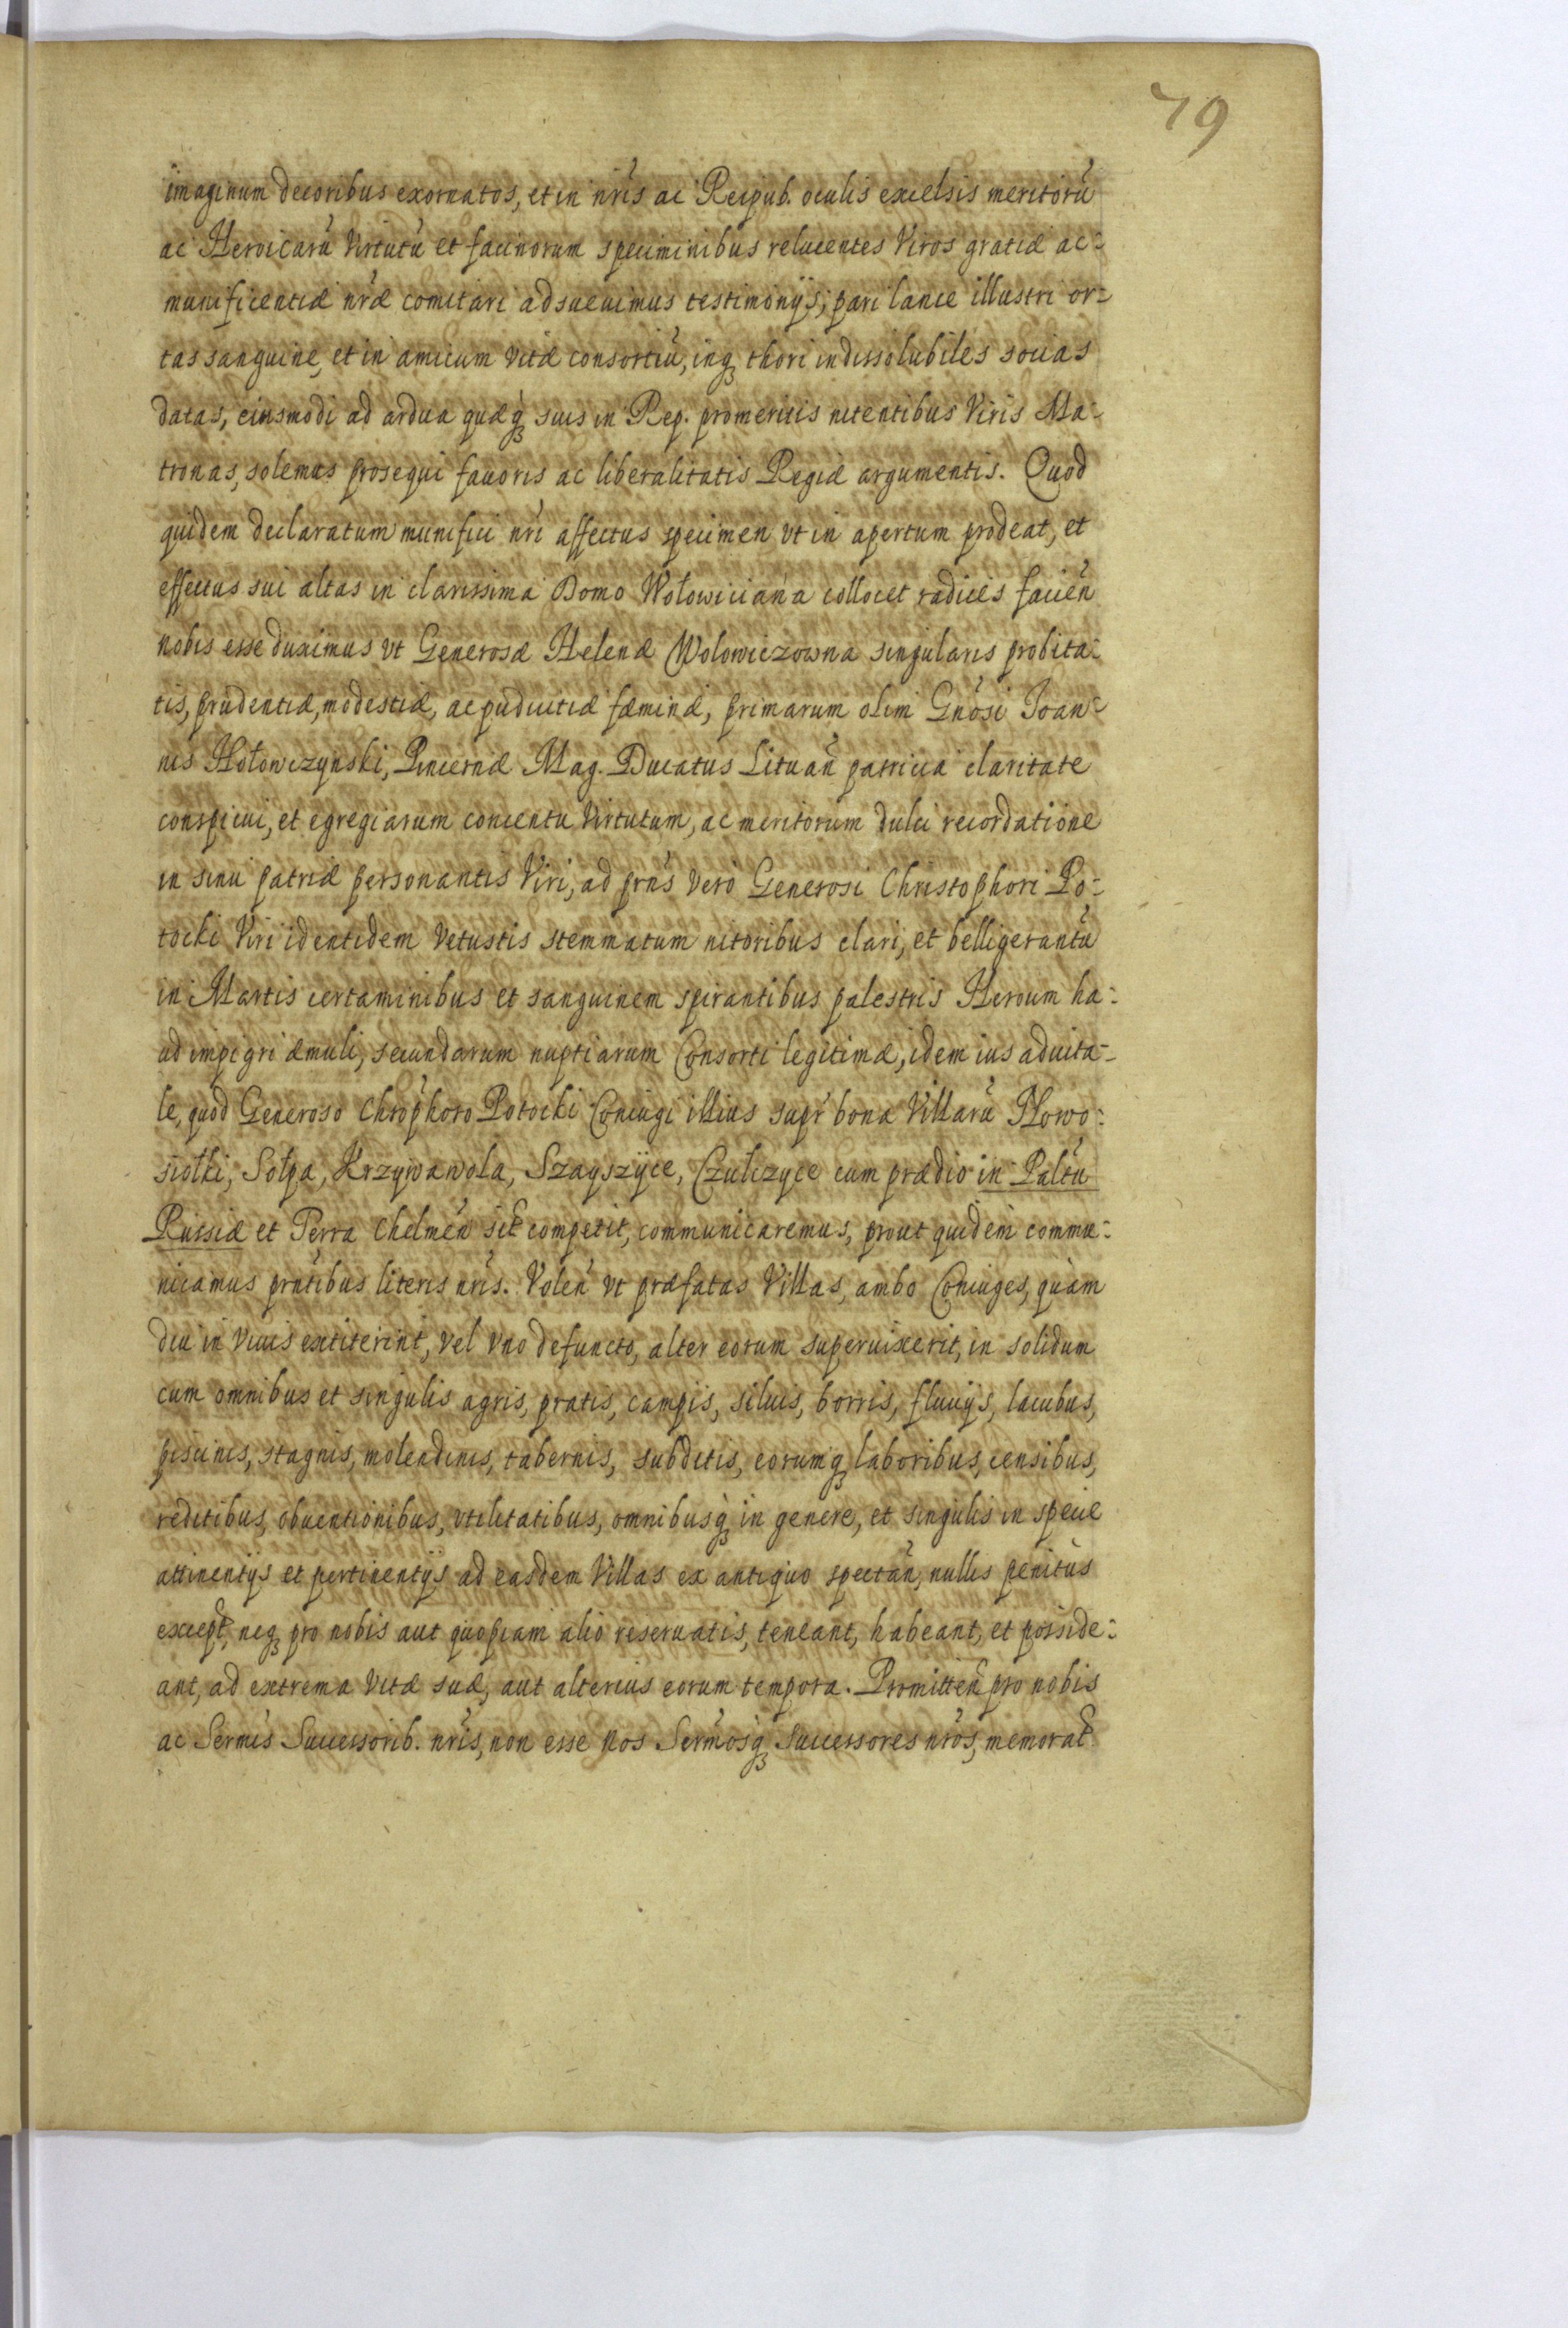 79
imaginum decoribus exornatos, et in nr̃is ac Reipub. oculis excelsis meritorũ
ac Heroicarũ Virtutũ et facinorum speciminibus relucentes Viros gratiæ ac-
munificentiæ nr̃æ comitari adsueuimus testimonijs; pari lance illustri or-
tas sanguine, et in amicum Vitæ consortiũ, inq; thori indissolubiles socias
datas, eiusmodi ad ardua quæq; suis in Rep. promeritis nitentibus Viris Ma-
tronas, solemus prosequi fauoris ac liberalitatis Regiæ argumentis. Quod
quidem declaratum munifici nr̃i affectus specimen vt in apertum prodeat, et
effectus sui altas in clarissima Domo Wołowiciana collocet radices facieñ
nobis esse duximus vt Generosæ Helenæ Wolowiczowna singularis probita-
tis, prudentiæ, modestiæ, ac pudicitiæ fæminæ, primarum olim Gñosi Joan-
nis Hołowczynski, Pincernæ Mag. Ducatus Lituañ patricia claritate
conspicui, et egregiarum concentu Virtutum, ac meritorum dulci recordatione
in sinu patriæ personantis Viri, ad prñs vero Generosi Christophori Po-
tocki Viri identidem Vetustis stemmatum nitoribus clari, et belligerantũ
in Martis certaminibus et sanguinem spirantibus palestris Heroum ha-
ud impigri æmuli, secundarum nuptiarum Consorti legitimæ, idem ius aduita-
le, quod Generoso Chrõphoro Potocki Coniugi illius supr̃ bona Villarũ Nowo-
siołki, Sołpa, Krzywawola, Szayszyce, Czulczyce cum prædio in Paltũ
Russiæ et Terra Chelmeñ sit̃ competit, communicaremus, prout quidem commu-
nicamus prñtibus literis nr̃is. Voleñ vt præfatas Villas, ambo Coniuges, quàm
diu in viuis extiterint, vel vno defuncto, alter eorum superuixerit, in solidum
cum omnibus et singulis agris, pratis, campis, siluis, borris, fluuijs, lacubus,
piscinis, stagnis, molendinis, tabernis, subditis, eorumq; laboribus, censibus,
reditibus, obuentionibus, vtilitatibus, omnibusq; in genere, et singulis in specie
attinentijs et pertinentijs ad easdem Villas ex antiquo spectañ, nullis penitùs
except̃, neq; pro nobis aut quopiam alio reseruatis, teneant, habeant, et posside-
ant, ad extrema vitæ suæ, aut alterius eorum tempora. Promitteñ pro nobis
ac Sermis̃ Successorib. nr̃is, non esse Nos Serm̃osq; Successores nr̃os, memorat̃